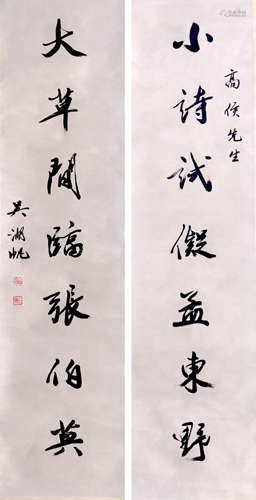 高侯先生
小詩試儗孟東野
大草閒臨張伯英
吳湖帆